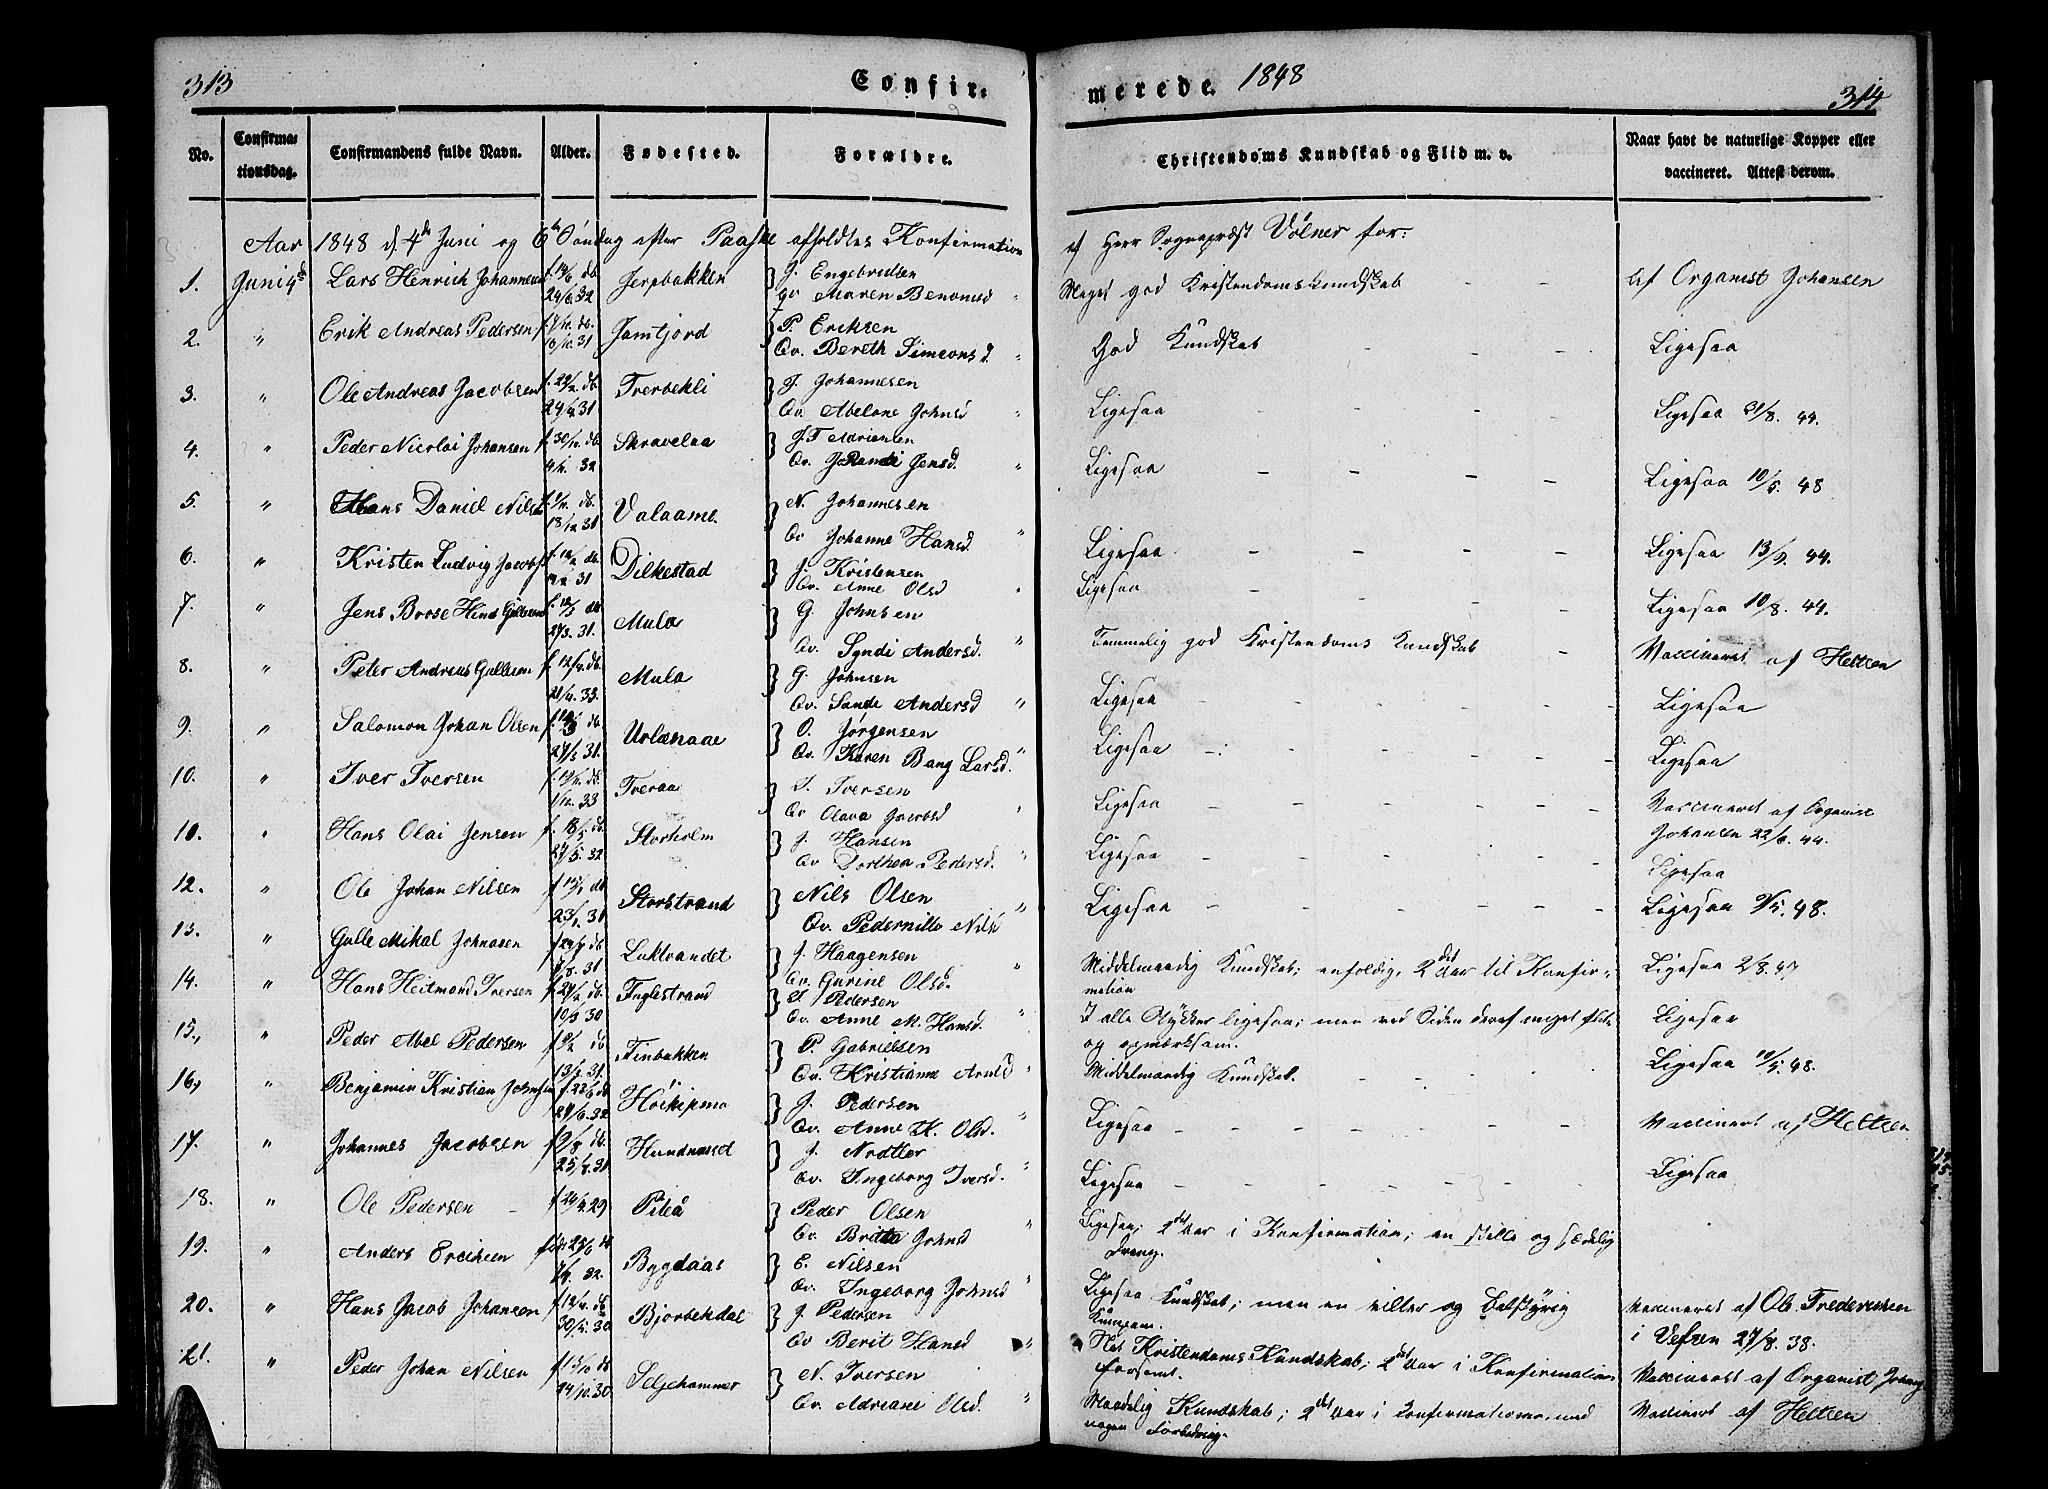 313
Confir-
merede. 1848
314
No.
Confirma-
tionsdag.
Confirmandens fulde Navn.
Alder.
Fødested.
Forældre.
Christendoms Kundskab og Flid m. v.
Naar havt de naturlige Kopper eller
vaccineret. Attest derom.
Aar 1848 d. 4de Juni og 6te Søndag efter Paaske afholdtes Konfirmation
af Herr Sognepræst Vólner for:
1. Juni 4d Lars Henrich Johannesen
24/6 32 Jerpbakken
J. Engebretsen
qv Maren Benonisd
Meget god Kristendomskundskab - -
Af Organist Johansen
2. " Erik Andreas Pedersen
16/10. 31 Jamtjord
P. Eriksen
Qv. Bereth Simeonsd. "
God Kundskab - - -
Ligesaa
3. " Ole Andreas Jacobsen
31 Tverbekli
J. Johannesen
Qv. Abelone Johnsd "
Ligesaa - - -
Ligesaa 31/8. 44.
4. " Peder Nicolai Johansen f. 30/10. db
32 Skravelaa
Qv. Jensd. "
Ligesaa - - - -
Ligesaa 10/5. 48
5. " Hans Daniel Nils
18/12 31 Valaamo.
N. Johannesen
Qv Johanne Hansd. "
Ligesaa - - - -
Ligesaa 13/9. 44.
6. " Kristen Ludvig Jacobs
31 Dilkestad
J. Kristensen
Qv. Anne Olsd "
Ligesaa - - - -
Ligesaa 10/8. 44.
7. " Jens
27/3. 31. Mula
G. Johnsen
Qv. Syndi Andersd. "
Temmelig god Kristendoms Kundskab -
Vaccineret af Heltzen
8. " Peter Andreas Gullesen f. 12/4. db.
21/4. 33. Mula
G. Johnsen
Qv. Andersd "
Ligesaa - - - -
Ligesaa
9. " Salomon Johan Olsen
31. Urlanaae
O. Jørgensen
Qv. Karen Bang Larsd. "
Ligesaa - - - -
Ligesaa
10. " Iver Iversen
1/12. 33 Tveraa
I. Iversen
Qv Olava Jacobsd "
Ligesaa - - - -
Vaccineret af Organist
Johansen 44.
10. " Hans Olai Jensen f. 18/5 db.
27/5. 32 Storholm
J. Hansen
Qv Dorthea Pedersd. "
Ligesaa - - - -
Ligesaa
12. " Ole Johan Nilsen f 15/1 db
23/1 31 Storstrand
Nils Olsen
Qv. Pedernille Nilsd "
Ligesaa - - - -
Ligesaa 9/5. 48.
13. " Gulle Mikal Johnasen
31 Luktvandet
J. Haagensen
Qv. Gurine Olsd. "
Middelmaadig Kundskab; enfoldig, 2det Aar til Konfir-
mation
Ligesaa 2/8. 47
14. " Hans Heitmand Iversen
10/3 30 Inglestrand
I. Pedersen
Qv. Anne M. Hansd. "
I alle Stykker ligesaa; men ved Siden deraf meget flitt
og opmærksom.
Ligesaa
15., " Peder Abel Pedersen f 9/2 db
13/2. 31. Finbakken
P. Gabrielsen
Qv. Kristianne "
Middelmaadig Kundskab. - - - -
Ligesaa 10/5. 48.
16, " Benjamin Kristian Johns f 22/6 db
24/6. 32 Höikipmo
J. Pedersen
Qv. Anne K. Olsd. "
Ligesaa - - - -
Vaccineret af Heltzen
17. " Johannes Jacobsen f 9/8 db.
25/8. 31 Hundnæset
J. Nodtler
Qv. Ingeborg Iversd. "
Ligesaa - - - -
Ligesaa
18. " Ole Pedersen - f 24/4. 29 Pileå
Peder Olsen
Qv. Britta Johnsd "
Ligesaa; 2det Aar i Konfirmation; en stille og sædelig
Dreng.
19. " Anders Ericksen
32. Bygdaas
E. Nilsen
Qv. Ingeborg Johnsd "
Ligesaa Kundskab; men en vildter og
20. " Hans Jacob Johansen f 12/4. db
30/5. 30 Bjørbekdal
J. Pedersen
Qv Berit Hansd "
Kristendoms Kundskab; 2det Aar i Konfirmation
forsømt.
Vaccineret af Ole Frederiksen
i Vefsen 27/8. 38.
21. " Peder Johan Nilsen f 13/10 db
24/10. 30 Seljehammer
N. Iversen
Qv. Adriane Olsd. "
Maadelig Kundskab; 2det Aar i Confirmationen, med
nogen Forbedring.
Vaccineret af Organist
Vaccineret af Heltzen